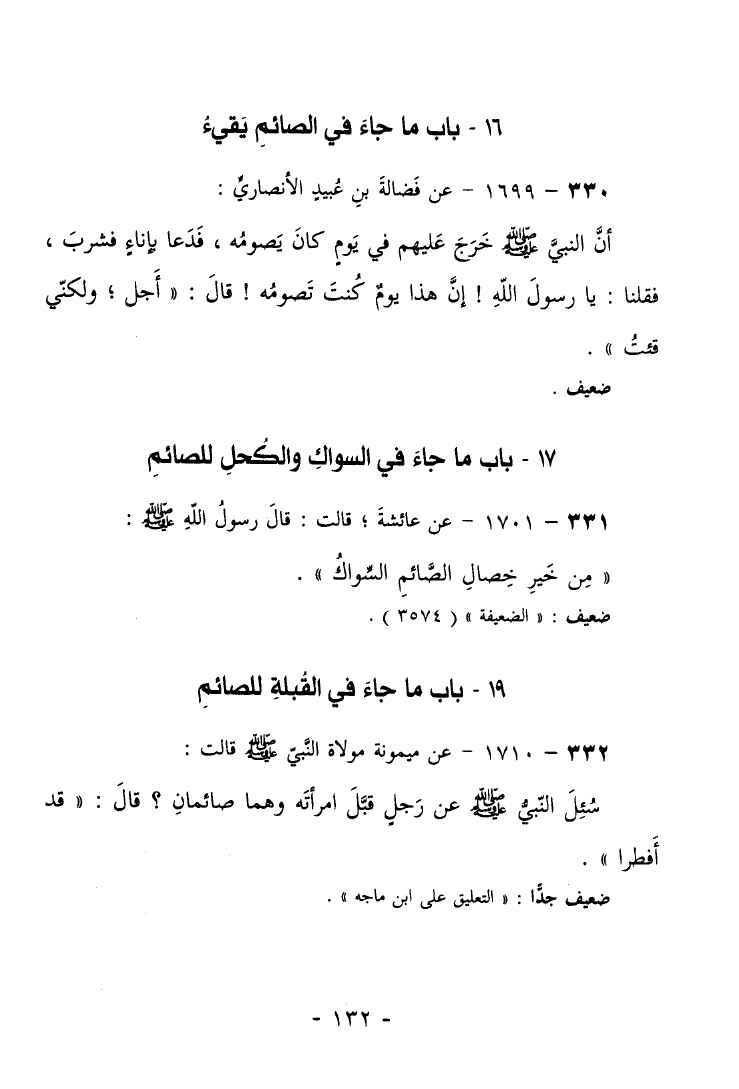 ١٦ - باب ما جاءَ في الصائمِ يَقيءُ
٣٣٠ – ١٦٩٩ – عن فَضالةَ بنِ عُبيدٍ الأنصاريِّ :
أنَّ النبيَّ ﷺ خَرَجَ عَليهم في يَومٍ كانَ يَصومُه ، فَدَعا بإناءٍ فشربَ ،
فقلنا : يا رسولَ اللّهِ ! إنَّ هذا يومٌ كُنتَ تَصومُه ! قالَ : « أَجل ؛ ولكنّي
قئتُ » .
ضعيف .
١٧ - باب ما جاءَ في السواكِ والكُحلِ للصائمِ
٣٣١ – ١٧٠١ – عن عائشةَ ؛ قالت : قالَ رسولُ اللّهِ ﷺ :
« مِن خَيرِ خِصالِ الصَّائمِ السِّواكُ » .
ضعيف : « الضعيفة » ( ٣٥٧٤ ) .
١٩ - باب ما جاءَ في القُبلةِ للصائمِ
٣٣٢ – ١٧١٠ – عن ميمونة مولاة النَّبيّ ﷺ قالت :
سُئِلَ النّبيُّ ﷺ عن رَجلٍ قبَّلَ امرأتَه وهما صائمانِ ؟ قالَ : « قد
أَفطرا » .
ضعيف جدًّا : « التعليق على ابن ماجه » .
- ١٣٢ -